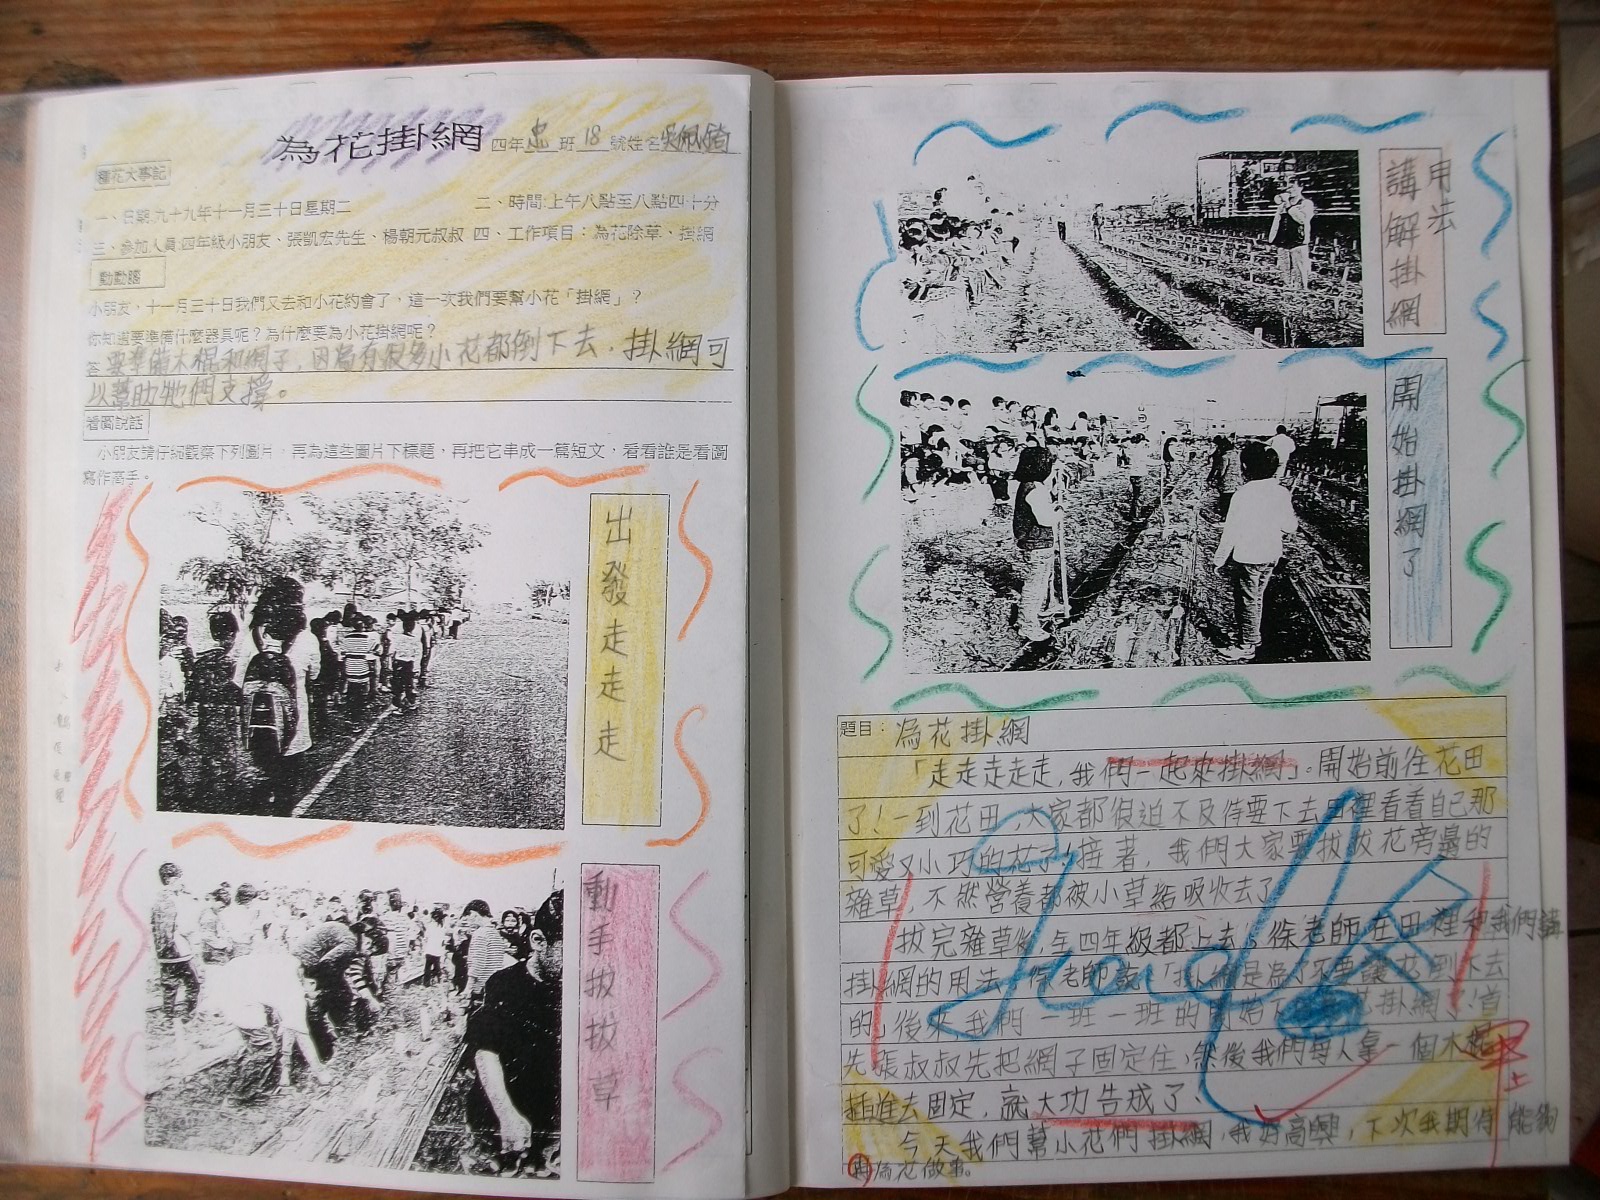 為花掛網 四年忠班18號姓名吳佩錡
種花大事記
一、日期:九十九年十一月三十日星期二 二、時間:上午八點至八點四十分
三、參加人員:四年級小朋友、張凱宏先生、楊朝元叔叔 四、工作項目：為花除草、掛網
動動腦
小朋友，十一月三十日我們又去和小花約會了，這一次我們要幫小花「掛網」？
你知道要準備什麼器具呢？為什麼要為小花掛網呢？
答要準備木棍和網子，因為有很多小花都倒下去，掛網可
以幫助牠們支撐。
看圖說話
小朋友請仔細觀察下列圖片，再為這些圖片下標題，再把它串成一篇短文，看看誰是看圖
寫作高手。
出發走走走
動手拔拔草
講解掛網
用法
開始掛網了
題目：為花掛網
「走走走走走，我們一起來掛網」。開始前往花田
了！一到花田，大家都很迫不及待要下去田裡看看自己那
可愛又小巧的花了！接著，我們大家要拔拔花旁邊的
雜草，不然營養都被小草給吸收去了
拔完雜草後，四年級都上去，徐老師在田裡和我們講
掛網的用法，徐老師說「掛網是為了不要讓花倒下去
的」後來，我們一班一班的開始下花掛網了！首
先張叔叔先把網子固定住，然後我們每人拿一個木棍
插進去固定，就大功告成了、
今天我們幫小花們掛網，我好高興，下次我期待能夠
再為花做事。
Good
甲上